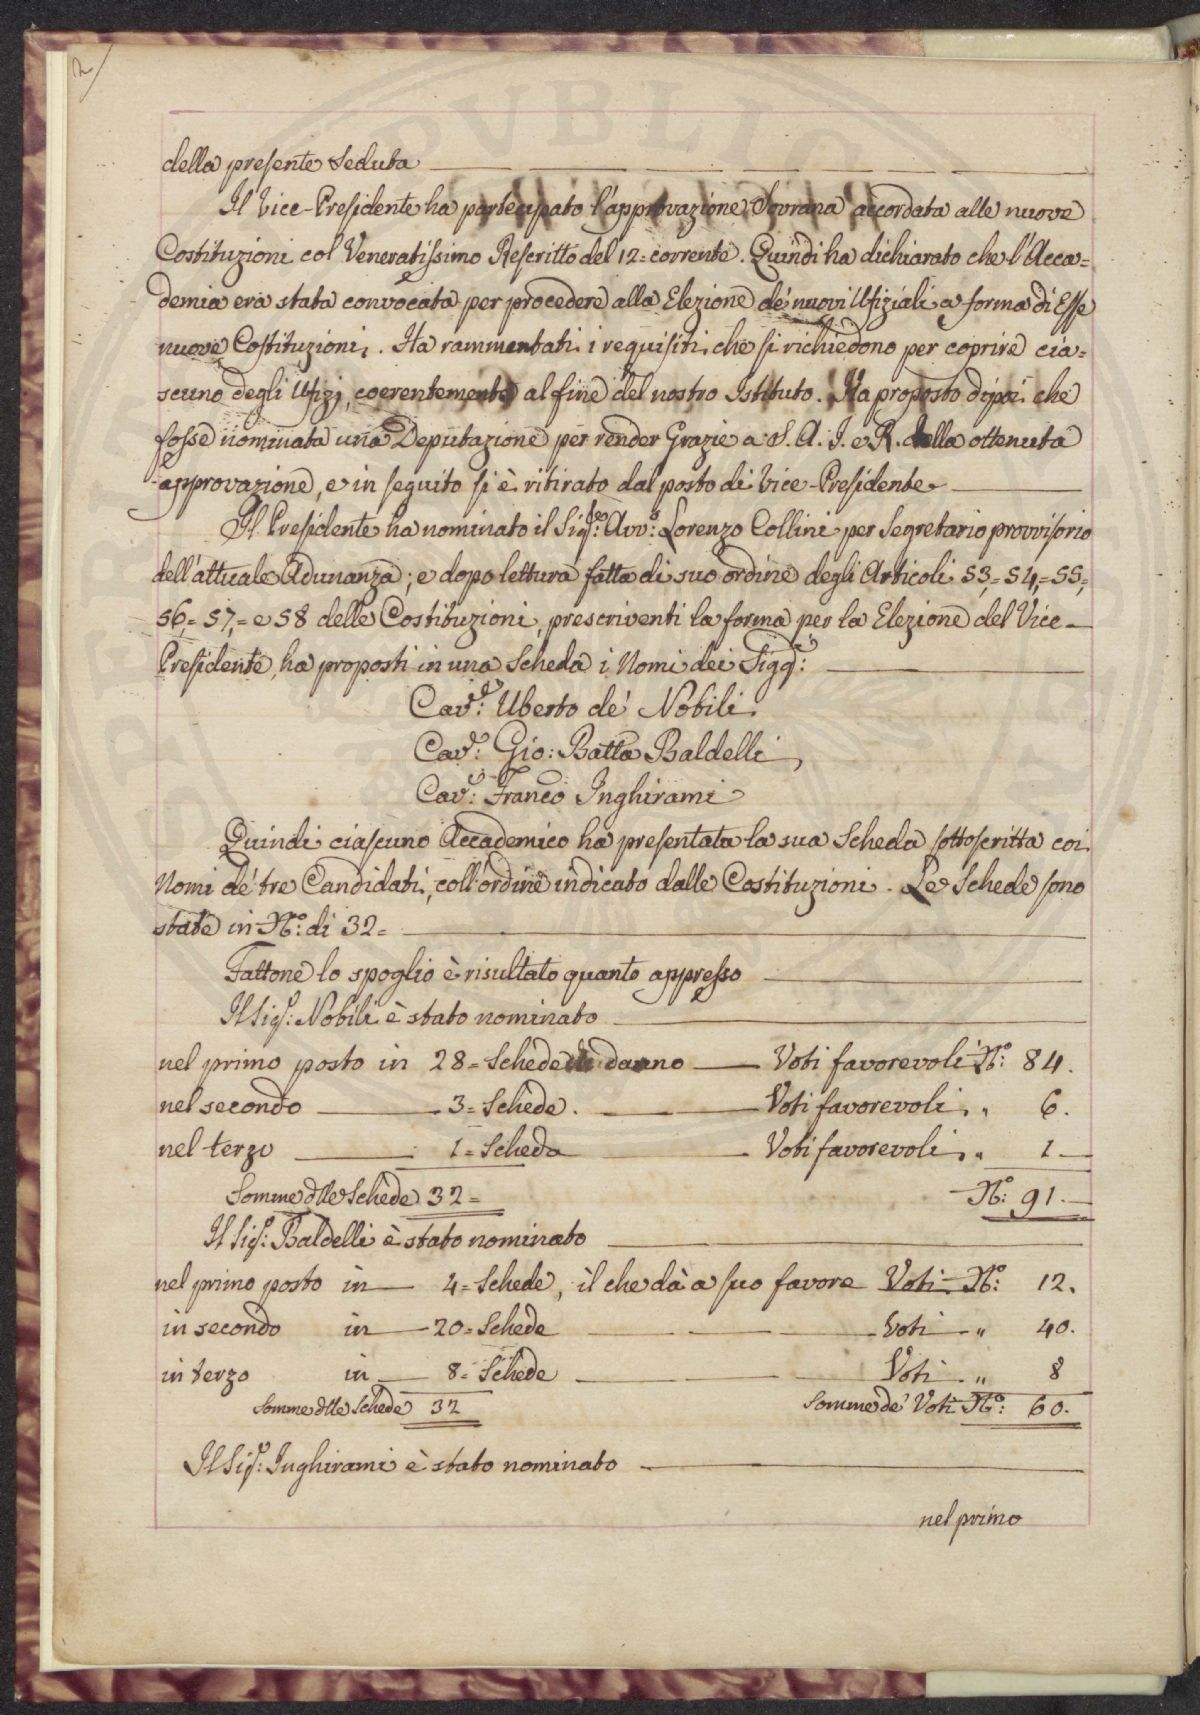 2/
della presente Seduta
Il Vice-Presidente ha partecipato l'approvazione Sovrana accordata alle nuove
Costituzioni col Veneratissimo Rescritto del 12= corrente. Quindi ha dichiarato che l'Acca=
demia era stata convocata per procedere alla Elezione de' nuovi Ufiziali a forma di Esse
nuove Costituzioni. Ha rammentati i requisiti che si richiedono per coprire cia=
scuno degli Ufizj coerentemente al fine del nostro Istituto. Ha proposto dipoi che
fosse nominata una Deputazione per render Grazie a S. A. I. e R. della ottenuta
approvazione, e in seguito si è ritirato dal posto di Vice-Presidente
Il Presidente ha nominato il Sigre: Avvo: Lorenzo Collini per Segretario provvisorio
dell'attuale Adunanza; e dopo lettura fatta di suo ordine degli Articoli 53,= 54,= 55,=
56,= 57,= e 58 delle Costituzioni, prescriventi la forma per la Elezione del Vice-
Presidente, ha proposti in una Scheda i Nomi dei Sigg:ri
Cave: Uberto de' Nobili
Cave: Gio: Batta Baldelli
Cave: Franco Inghirami
Quindi ciascuno Accademico ha presentata la sua Scheda sottoscritta coi
Nomi de' tre Candidati, coll'ordine indicato dalle Costituzioni. Le Schede sono
state in No: di 32=
Fattone lo spoglio è risultato quanto appresso
Il Sigr: Nobili è stato nominato
nel primo posto in 28= Schede danno Voti favorevoli No: 84.
nel secondo 3= Schede. Voti favorevoli " 6.
nel terzo 1= Scheda Voti favorevoli " 1
Somme dlle Schede 32= No: 91.
Il Sigr: Baldelli è stato nominato
nel primo posto in 4= Schede, il che dà a suo favore Voti No: 12.
in secondo in 20= Schede Voti " 40.
in terzo in 8= Schede Voti " 8
Somme dlle Schede 32 Somme de' Voti No: 60.
Il Sigr: Inghirami è stato nominato
nel primo